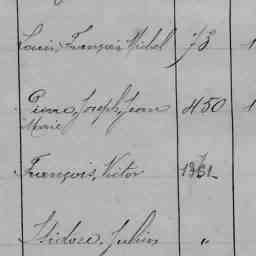 Louis, François, Michel 73 1
Pierre, Joseph, Jean 450 1
Marie
François, Victor 1351
Isidore, Julien "